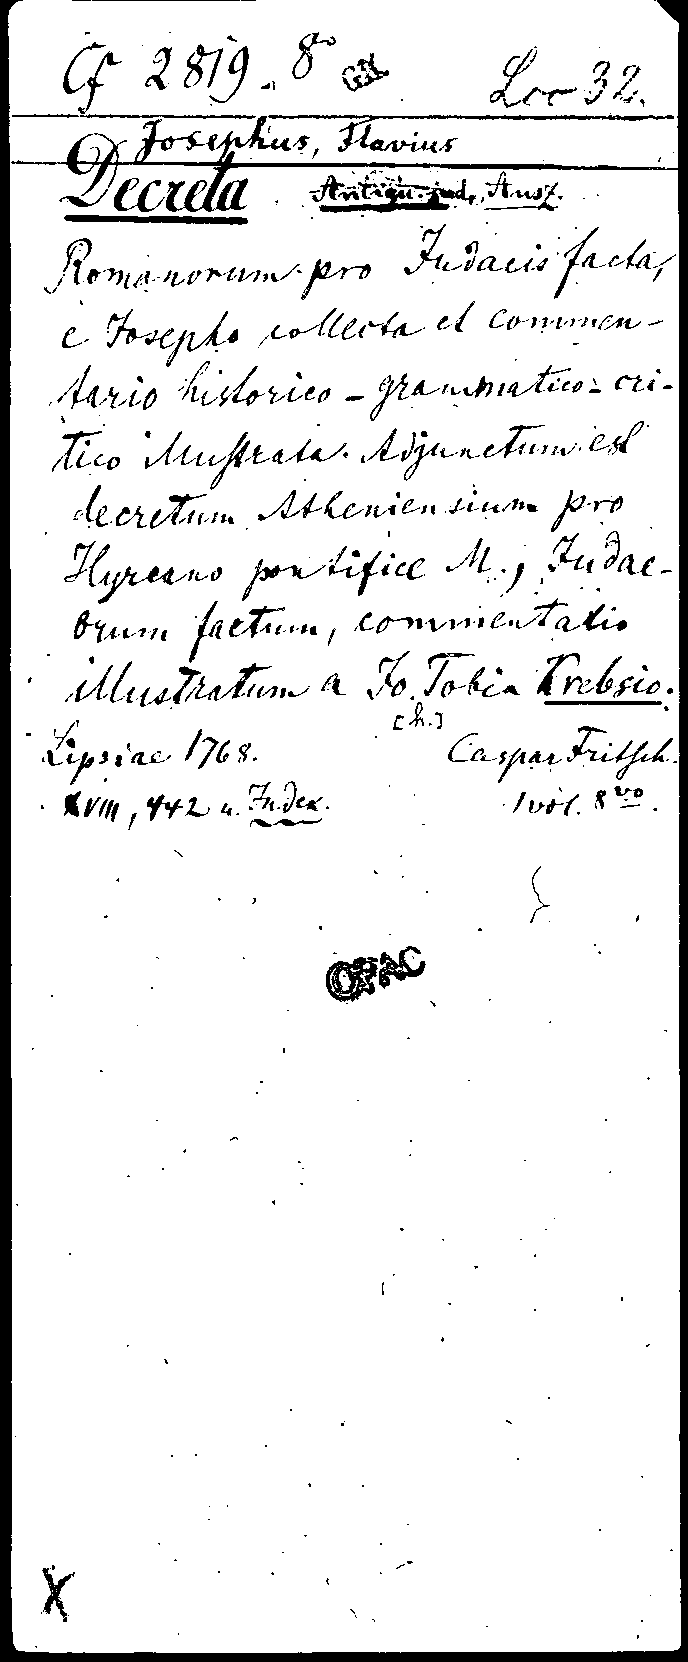 Cf 2819. 8° GK Loc 32.
Josephus, Flavius
Decreta Antiqu. jud., Ausz.
Romanorum pro Judaeis facta,
e Josepho collecta et commen-
tario historico-grammatico-cri-
tico illustrata. Adjunctum est
decretum Atheniensium pro
Hyrcano pontifice M., Judae-
orum factum, commentatio
illustratum a Jo. Tobia Krebsio.
[h.]
Lipsiae 1768. Caspar Fritsch.
XVIII, 442 u. Index. 1 vol. 8vo.
OPAC
X